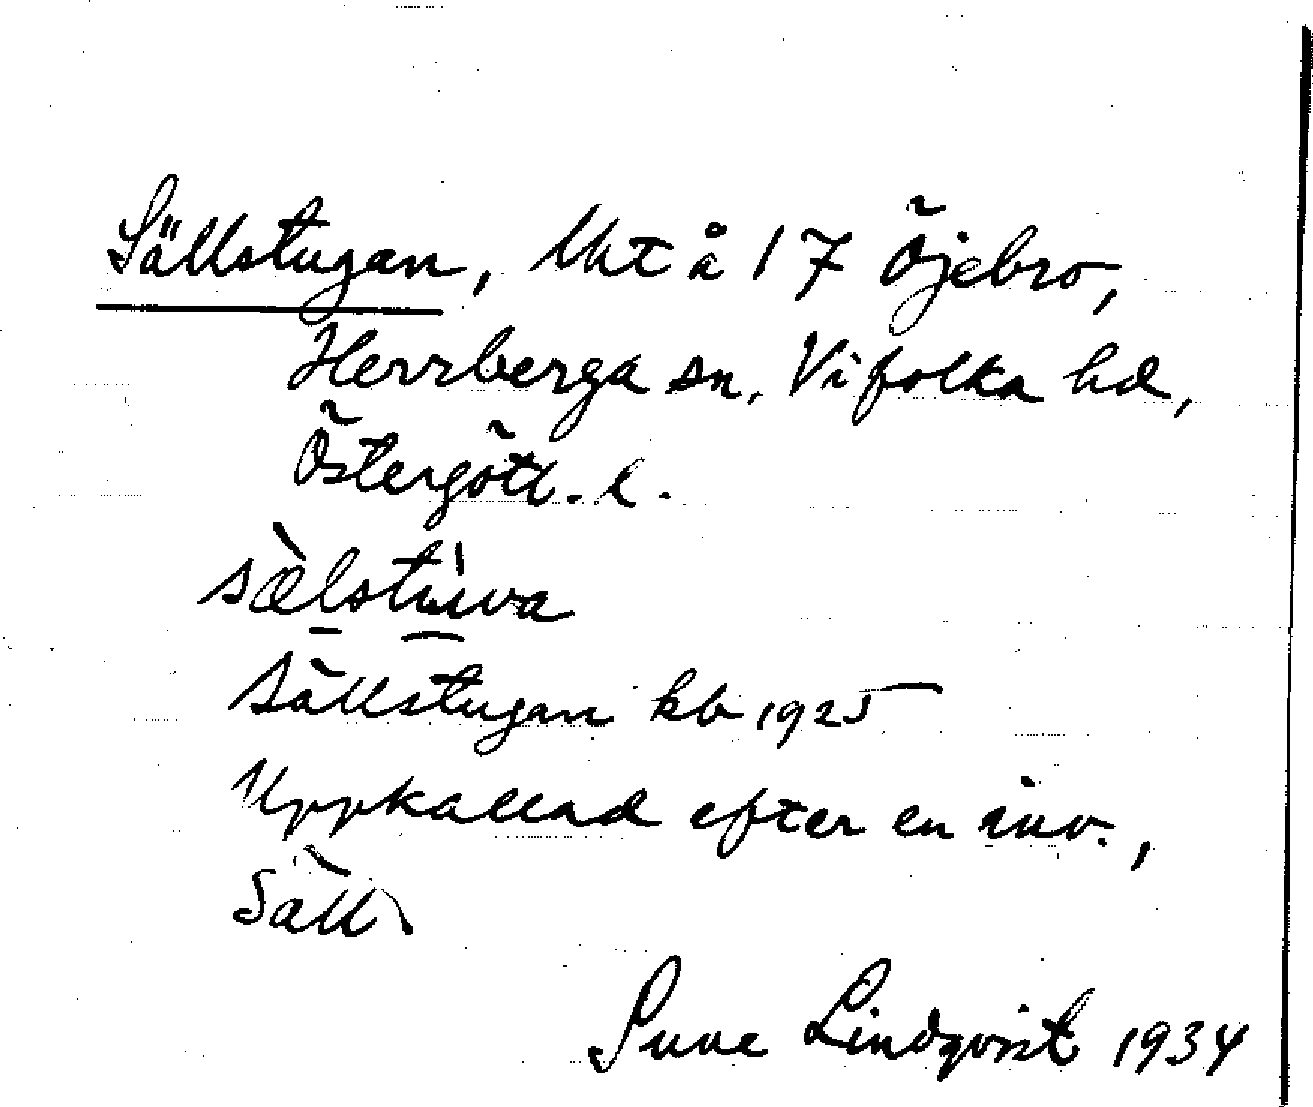 Sällstugan, lht å 1 7 Öjebro,
Herrberga sn. Vifolka hd,
Östergötl. l.
sæ̀lstúwa
Sällstugan kb 1925
Uppkallad efter en inv.,
Säll
Sune Lindqvist 1934